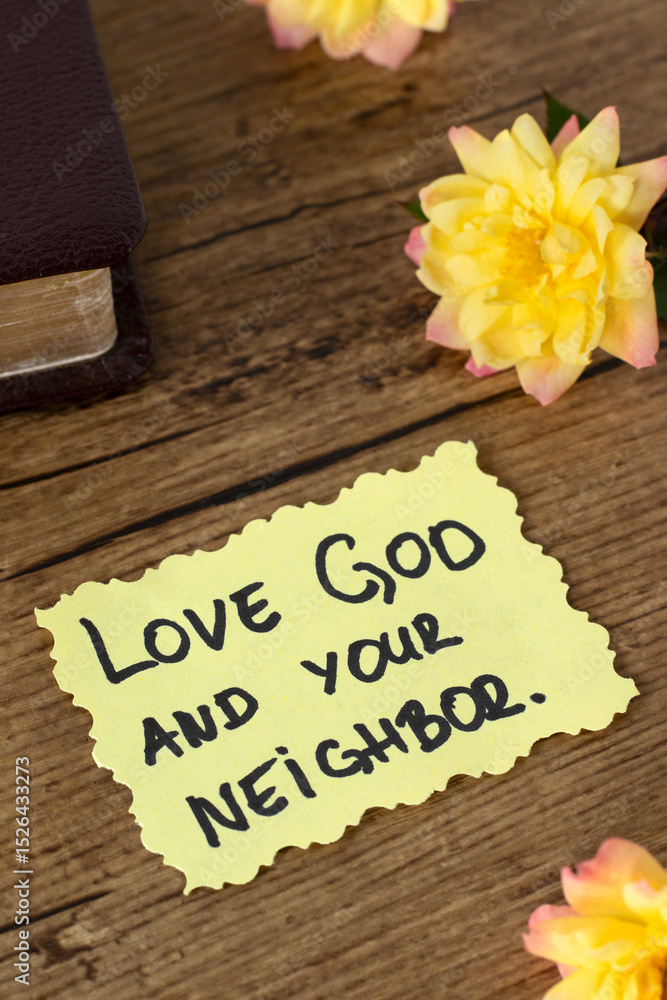 LOVE GOD
AND YOUR
NEiGHBOR.
Adobe Stock | #1526433273